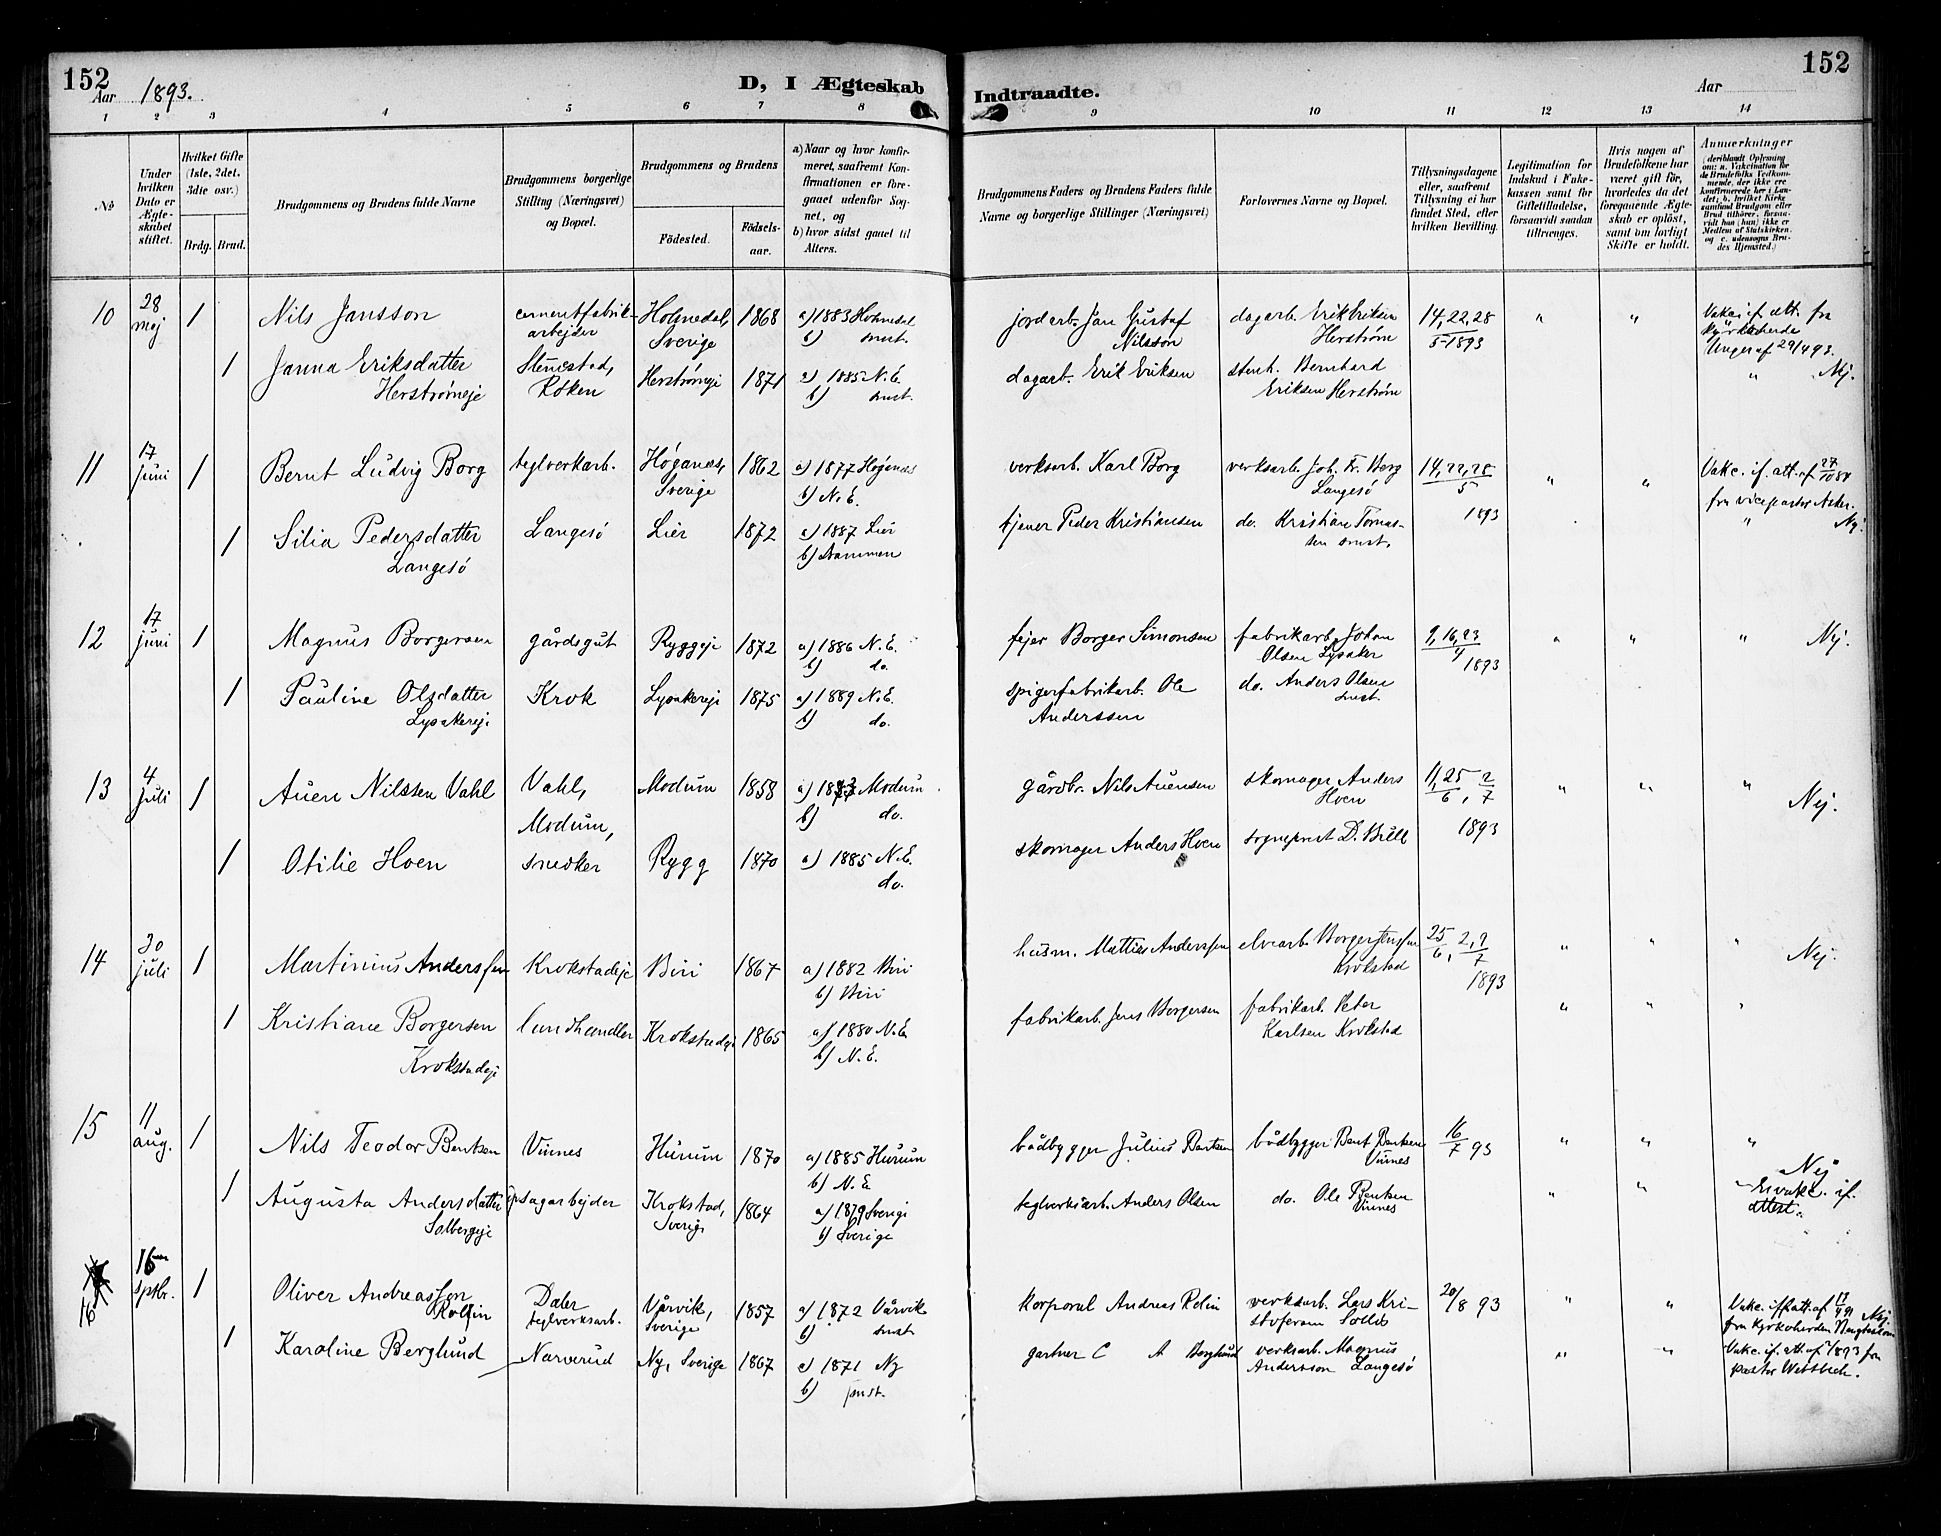 152
Aar 1893.
D, I Ægteskab Indtraadte.
Aar
152
1 2 3 4 5 6 7 8 9 10 11 12 13 14
No.
Under hvilken Dato er Ægteskabet stiftet.
Hvilket Gifte (1ste, 2det, 3die osv.)
Brdg. Brud.
Brudgommens og Brudens fulde Navne
Brudgommens borgerlige Stilling (Næringsvei) og Bopæl.
Brudgommens og Brudens
Fødested.
Fødselsaar.
a) Naar og hvor konfirmeret, saafremt Konfirmationen er foregaaet udenfor Sognet, og
b) hvor sidst gaaet til Alters.
Brudgommens Faders og Brudens Faders fulde Navne og borgerlige Stillinger (Næringsvei)
Forlovernes Navne og Bopæl.
Tillysningsdagene eller, saafremt Tillysning ei har fundet Sted, efter hvilken Bevilling.
Legitimation for Indskud i Enkekassen samt for Giftetilladelse, forsaavidt saadan tiltrænges.
Hvis nogen af Brudefolkene har været gift før, hvorledes da det foregaaende Ægteskab er opløst, samt om lovligt Skifte er holdt.
Anmærkninger (deriblandt Oplysning om: a. Vakcination for de Brudefolks Vedkommende, der ikke ere konfirmerede her i Landet; b. hvilket Kirkesamfund Brudgom eller Brud tilhører, forsaavidt han (hun) ikke er Medlem af Statskirken, og c. udensogns Brudes Hjemsted.)
10 28 mej 1 Nils Jansson cementfabrikarbejder Holmedal, Sverige 1868 a) 1883 Holmedal b) smst. jordarb. Jan Gustaf Nilsson dagarb. Erik Eriksen Herstrøm 14, 22, 28/5 1893 " " Vake. if. att. fra kyrkoherde Unger af 29/4 93.
1 Janna Eriksdatter Herstrømeje Stenestad, Røken Herstrømeje 1871 a) 1885 N.E. b) smst. dagarb. Erik Eriksen stenh. Bernhard Eriksen Herstrøm " Nej.
11 17 Juni 1 Bernt Ludvig Borg teglverkarb. Höganæs, Sverige 1862 a) 1877 Höganæs b) N.E. verksarb. Karl Borg verksarb. Joh. Fr. Berg Langesö 14, 22, 28/5 1893 " " Vake. if. att. af 27/10 84 fra vicepastor Asker.
1 Silia Pedersdatter Langesö Langesö Lier 1872 a) 1887 Lier b) Drammen tjener Peder Kristiansen do. Kristian Tomassen smst. " Nej.
12 17 juni 1 Magnus Borgersen gårdsgut Ryggeje 1872 a) 1886 N.E. b) do. fejer Borger Simonsen fabrikarb. Johan Olsen Lysaker 9, 16, 23/4 1893 " " " Nej.
1 Pauline Olsdatter Lysakereje Krok Lysakereje 1875 a) 1889 N.E. b) do. spigerfabrikarb. Ole Anderssen do. Anders Olsen smst.
13 4 juli 1 Auen Nilssen Vahl Vahl, Modum, Modum 1858 a) 1873 Modum b) do. gårdbr. Nils Auensen skomager Anders Hoen 11, 25/6, 2/7 1893 " " " Nej.
1 Otilie Hoen snedker Rygg 1870 a) 1885 N.E. do. skomager Anders Hoen sogneprest D. Bull
14 30 juli 1 Martinius Anderssen Krokstadeje Biri 1867 a) 1882 Biri b) Biri husm. Mattias Anderssen elvearb. Borger Jenssen Krokstad 25/6, 2, 9/7 1893 " " " Nej.
1 Kristiane Borgersen Krokstadeje landhandler Krokstadeje 1865 a) 1880 N.E. b) N.E. fabrikarb. Jens Borgersen fabrikarb. Peter Karlsen Krokstad " " "
15 11 aug. 1 Nils Teodor Bentsen Vinnes Hurum 1870 a) 1885 Hurum b) N.E. bådbygger Julius Bentsen bådbygger Bent Bentsen Vinnes 16/7 93 " " " Nej
1 Augusta Andersdatter Solbergeje sagarbejder Krokstad, Sverige 1864 a) 1879 Sverige b) Sverige teglverksarb. Anders Olsen do. Ole Bentsen Vinnes " " Er vake. if. attest.
16 16 septbr. 1 Oliver Andreasson Rolfin Daler teglverksarb. Vårvik, Sverige 1857 a) 1872 Vårvik b) smst korporal Andreas Rolin verksarb. Lars Kristofersen Sollid 20/8 93 " " Vake. if. att. af 13/4 91 fra kyrkoherden Nej.
1 Karoline Berglund Narverud Ny, Sverige 1867 a) 1871 Ny b) smst. gartner C A Berglund verksarb. Magnus Andersson Langesö " " Vake. if. att. af 1893 fra pastor